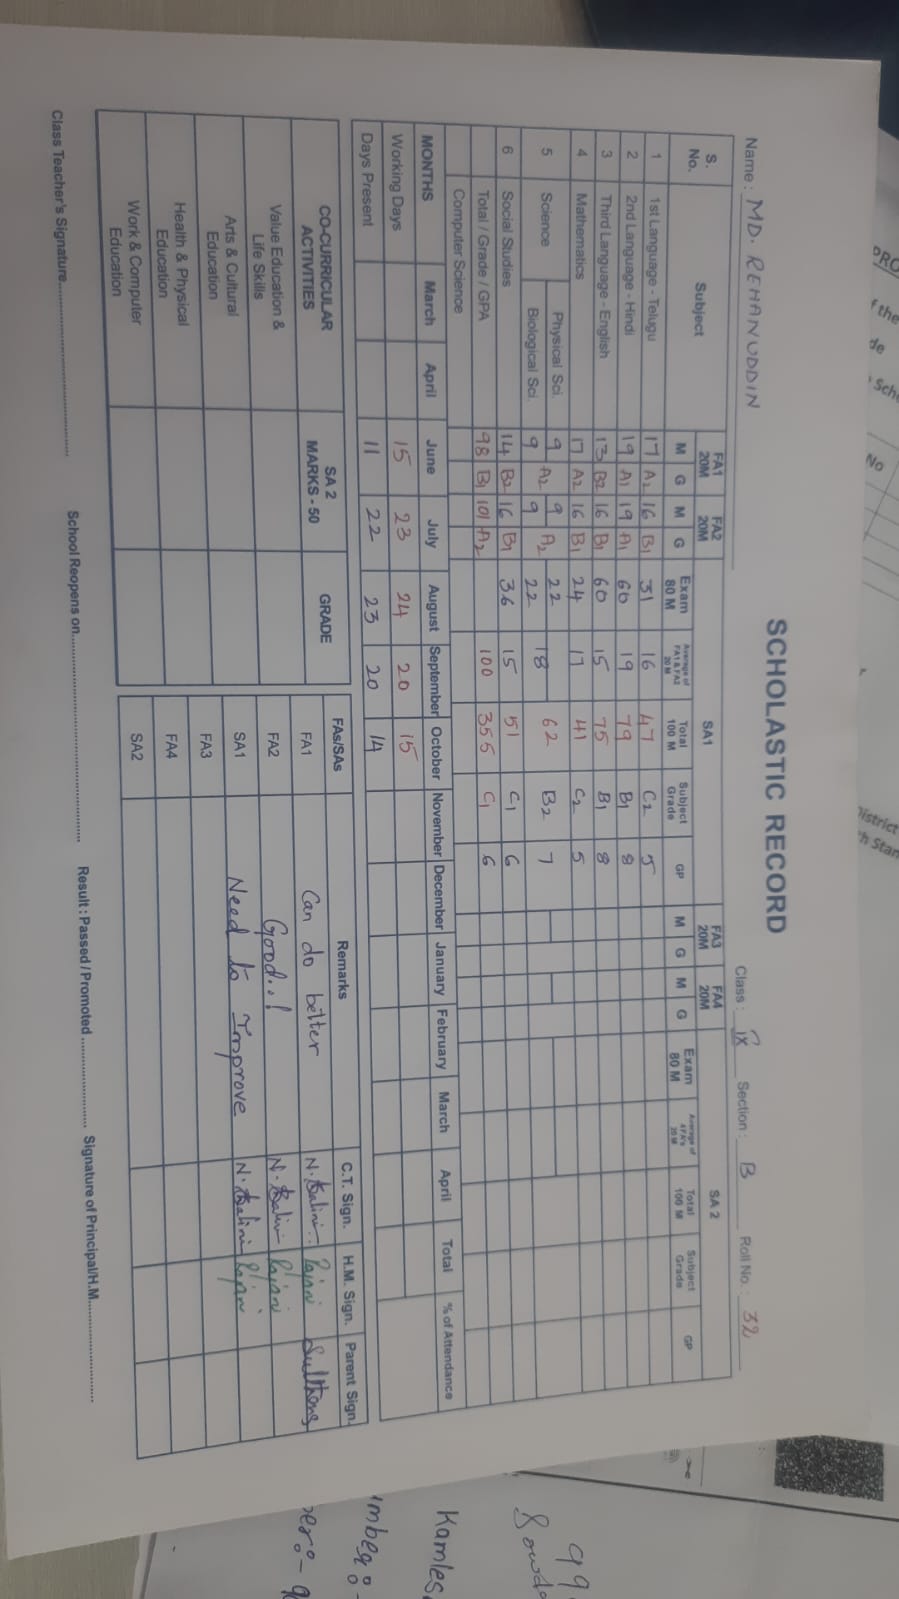 SCHOLASTIC RECORD
Name : MD. REHANUDDIN Class : IX Section : B Roll No. : 32
S. No. Subject FA1 20M FA2 20M SA1 FA3 20M FA4 20M SA 2
M G M G Exam 80 M Average of FA1 & FA2 20 M Total 100 M Subject Grade GP M G M G Exam 80 M Average of 4 FA's 20 M Total 100 M Subject Grade GP
1 1st Language - Telugu 17 A2 16 B1 31 16 47 C2 5
2 2nd Language - Hindi 19 A1 19 A1 60 19 79 B1 8
3 Third Language - English 13 B2 16 B1 60 15 75 B1 8
4 Mathematics 17 A2 16 B1 24 17 41 C2 5
5 Science Physical Sci. 9 A2 9 A2 22 18 62 B2 7
Biological Sci. 9 9 22
6 Social Studies 14 B2 16 B1 36 15 51 C1 6
Total / Grade / GPA 98 B1 101 A2 100 355 C1 6
Computer Science
MONTHS March April June July August September October November December January February March April Total % of Attendance
Working Days 15 23 24 20 15
Days Present 11 22 23 20 14
CO-CURRICULAR ACTIVITIES SA 2 MARKS - 50 GRADE
Value Education & Life Skills
Arts & Cultural Education
Health & Physical Education
Work & Computer Education
FAs/SAs Remarks C.T. Sign. H.M. Sign. Parent Sign.
FA1 Can do better
FA2 Good..!
SA1 Need to Improve
FA3
FA4
SA2
Class Teacher's Signature.................... School Reopens on.................... Result : Passed / Promoted .................... Signature of Principal/H.M....................
PRO
f the
de
Sch
No
istrict
h Stan
99
Kamles
umber :-
ber :- 9